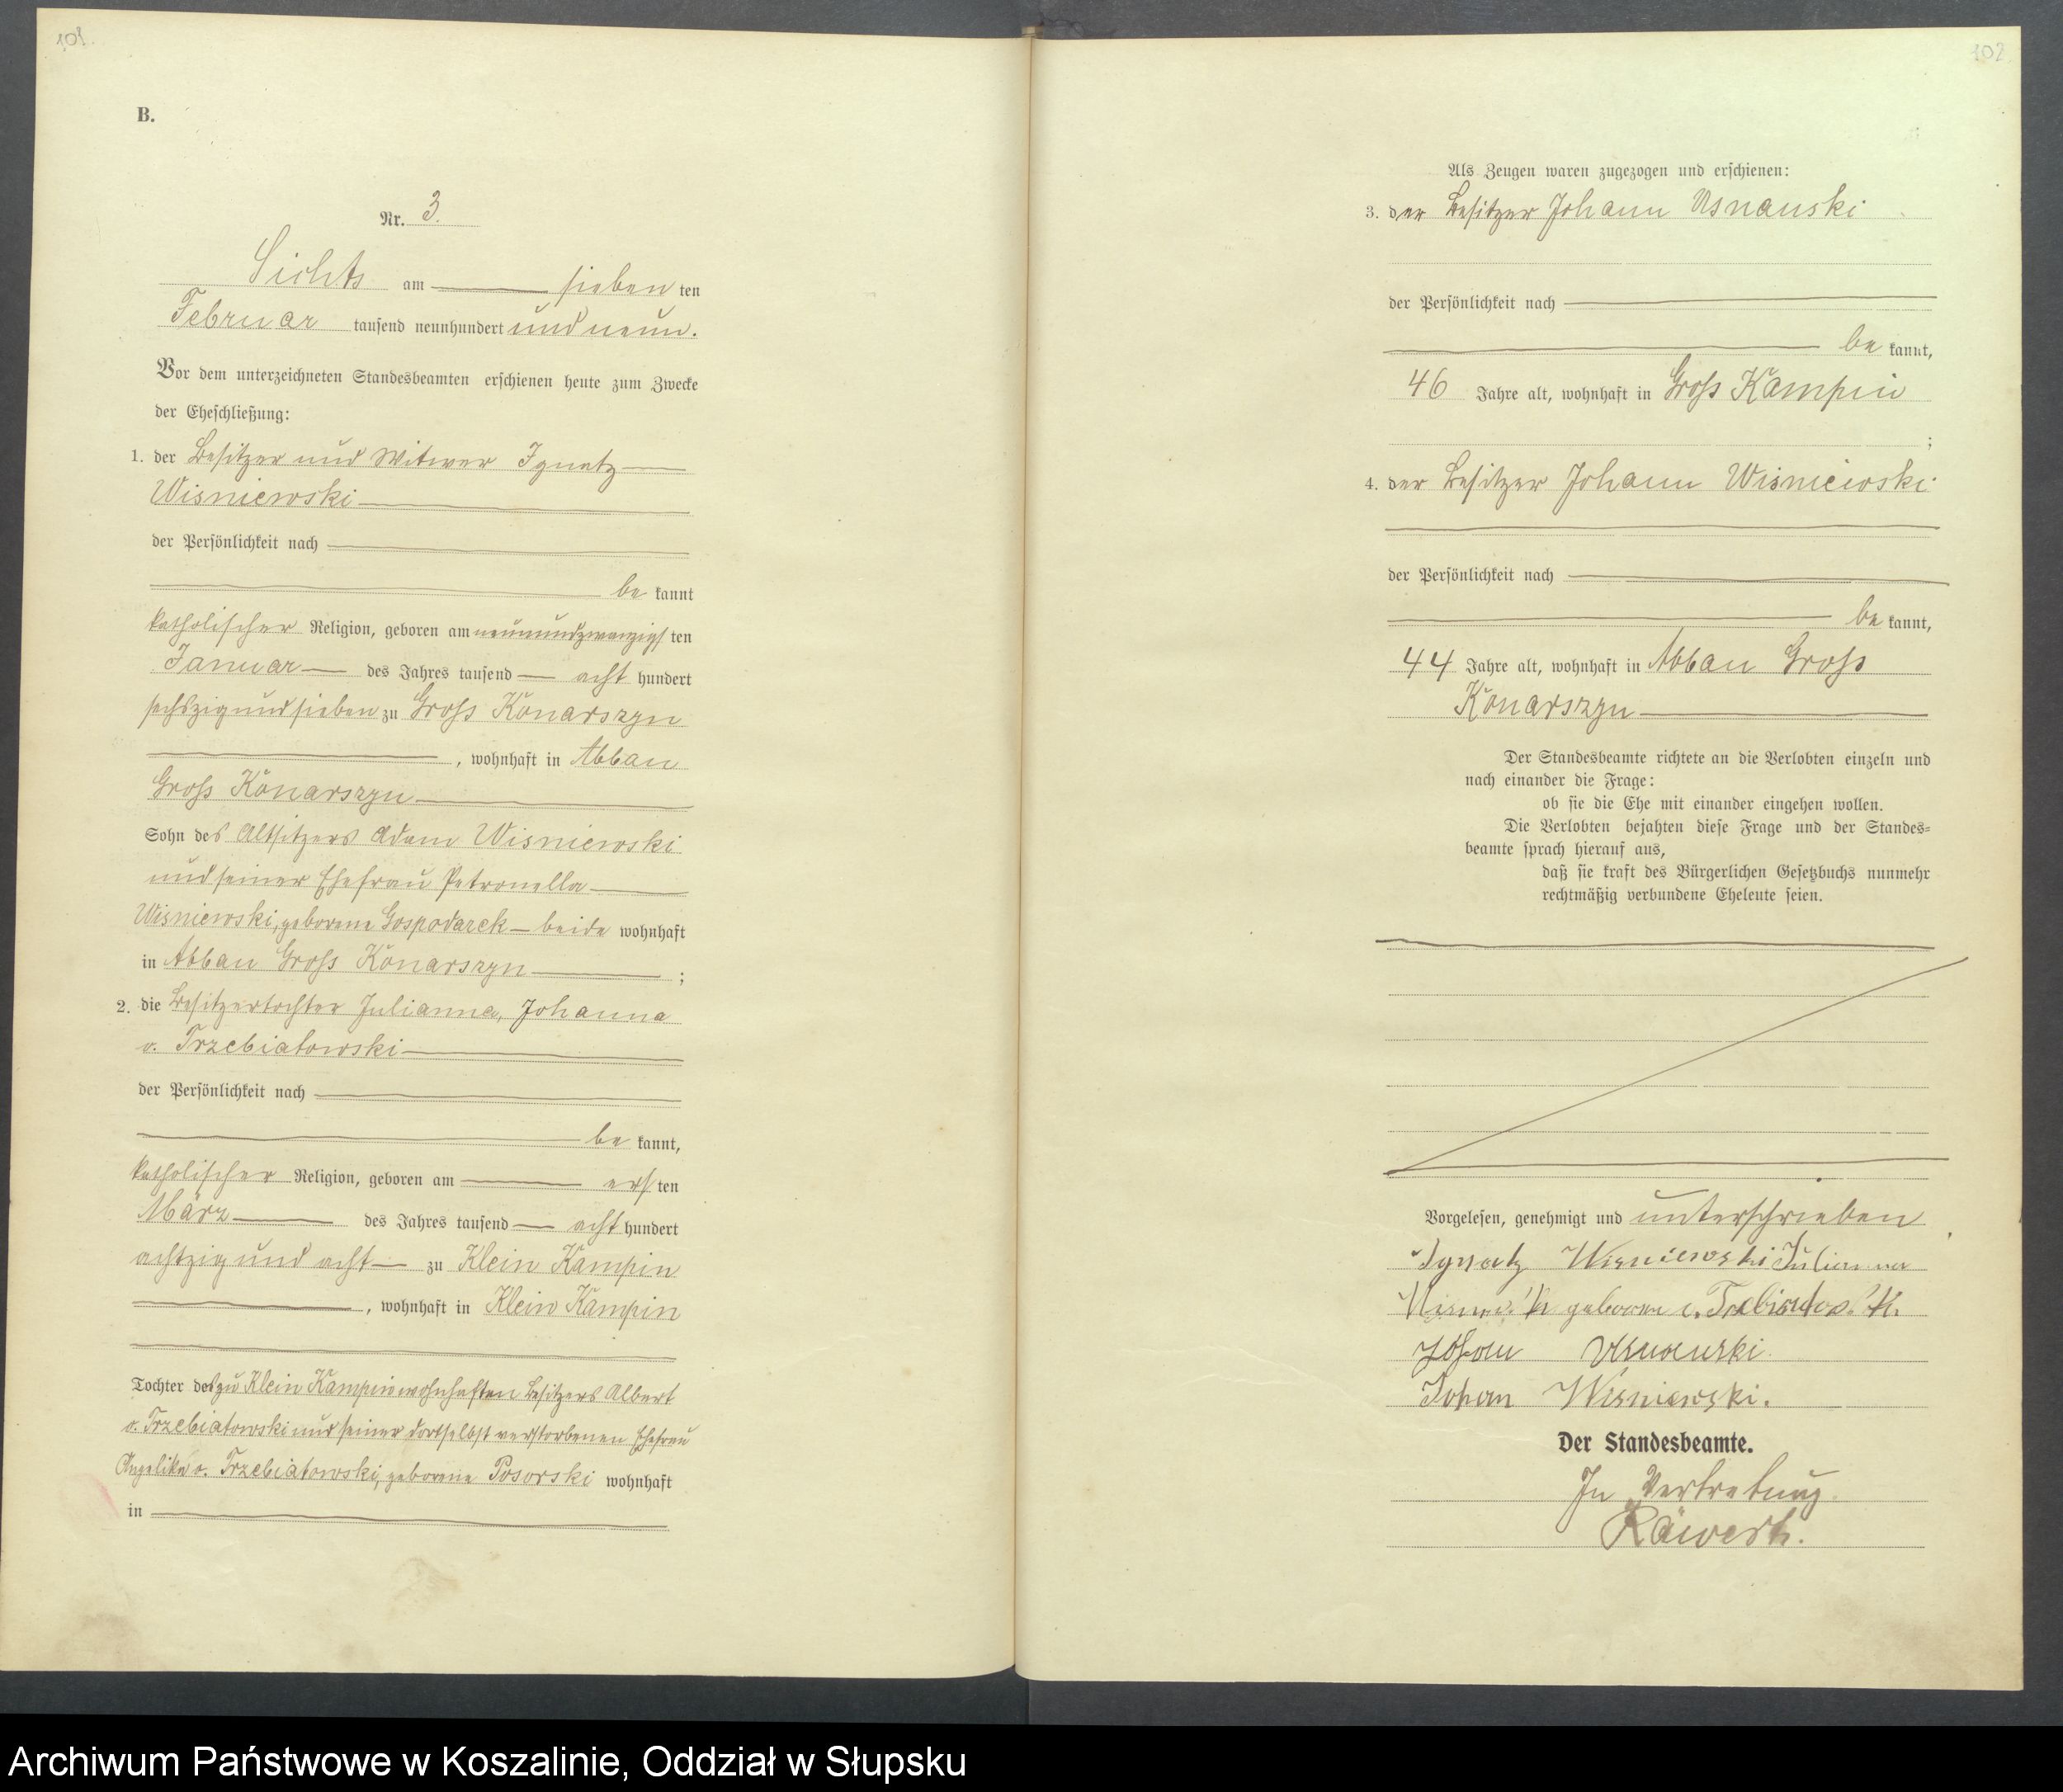 101.
B.
Nr. 3.
Sichts am sieben ten
Februar tausend neunhundert und neun.
Vor dem unterzeichneten Standesbeamten erschienen heute zum Zwecke
der Eheschließung:
1. der Besitzer und Witwer Ignatz
Wisniewski
der Persönlichkeit nach
be kannt
katholischer Religion, geboren am neunundzwanzigs ten
Januar des Jahres tausend acht hundert
sechszig und sieben zu Gross Konarszyn
, wohnhaft in Abbau
Gross Konarszyn
Sohn des Altsitzers Adam Wisniewski
und seiner Ehefrau Petronella
Wisniewski, geborene Gospodarek – beide wohnhaft
in Abbau Gross Konarszyn ;
2. die Besitzertochter Julianna, Johanna
v. Trzebiatowski
der Persönlichkeit nach
be kannt,
katholischer Religion, geboren am ers ten
März des Jahres tausend acht hundert
achtzig und acht zu Klein Kampin
, wohnhaft in Klein Kampin
Tochter des zu Klein Kampin wohnhaften Besitzers Albert
v. Trzebiatowski und seiner dortselbst verstorbenen Ehefrau
Angelika v. Trzebiatowski, geborene Posorski wohnhaft
in
102
Als Zeugen waren zugezogen und erschienen:
3. der Besitzer Johann Usnanski
der Persönlichkeit nach
be kannt,
46 Jahre alt, wohnhaft in Gross Kampin
;
4. der Besitzer Johann Wisniewski
der Persönlichkeit nach
be kannt,
44 Jahre alt, wohnhaft in Abbau Gross
Konarszyn
Der Standesbeamte richtete an die Verlobten einzeln und
nach einander die Frage:
ob sie die Ehe mit einander eingehen wollen.
Die Verlobten bejahten diese Frage und der Standes=
beamte sprach hierauf aus,
daß sie kraft des Bürgerlichen Gesetzbuchs nunmehr
rechtmäßig verbundene Eheleute seien.
Vorgelesen, genehmigt und unterschrieben
Ignatz Wisniewski Julianna
geboren v.
Johan Usnanski
Johan Wisniewski.
Der Standesbeamte.
In Vertretung
Archiwum Państwowe w Koszalinie, Oddział w Słupsku